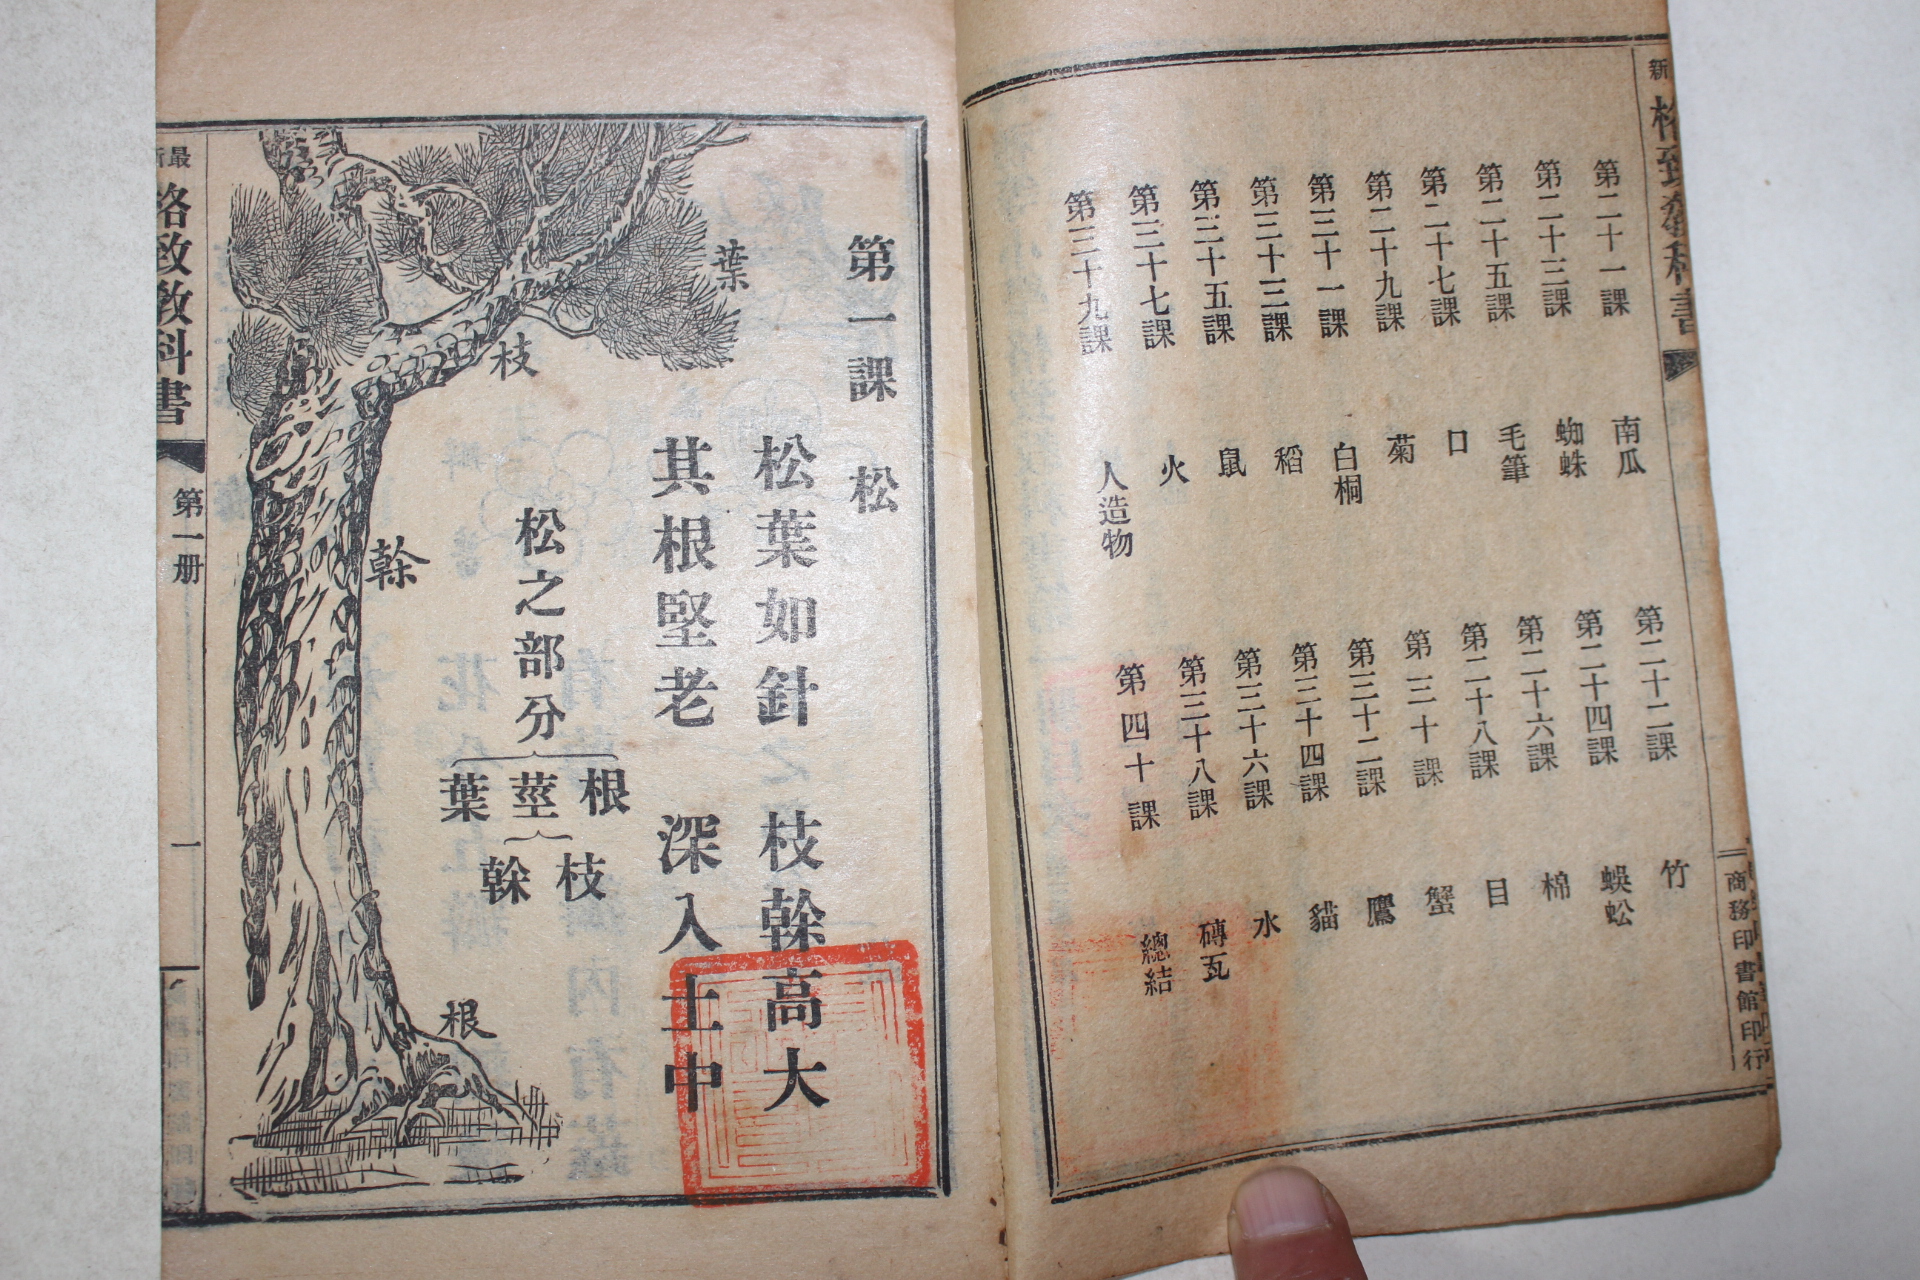 格致教科書
第二十一課 南瓜
第二十二課 竹
第二十三課 蜘蛛
第二十四課 蜈蚣
第二十五課 毛筆
第二十六課 棉
第二十七課 口
第二十八課 目
第二十九課 菊
第三十課 蟹
第三十一課 白桐
第三十二課 鷹
第三十三課 稻
第三十四課 貓
第三十五課 鼠
第三十六課 水
第三十七課 火
第三十八課 磚瓦
第三十九課 人造物
第四十課 總結
商務印書館印行
第一課 松
松葉如針 枝榦高大
其根堅老 深入土中
松之部分
根
莖
葉
枝
榦
葉
枝
榦
根
最新
格致教科書
第一册
一